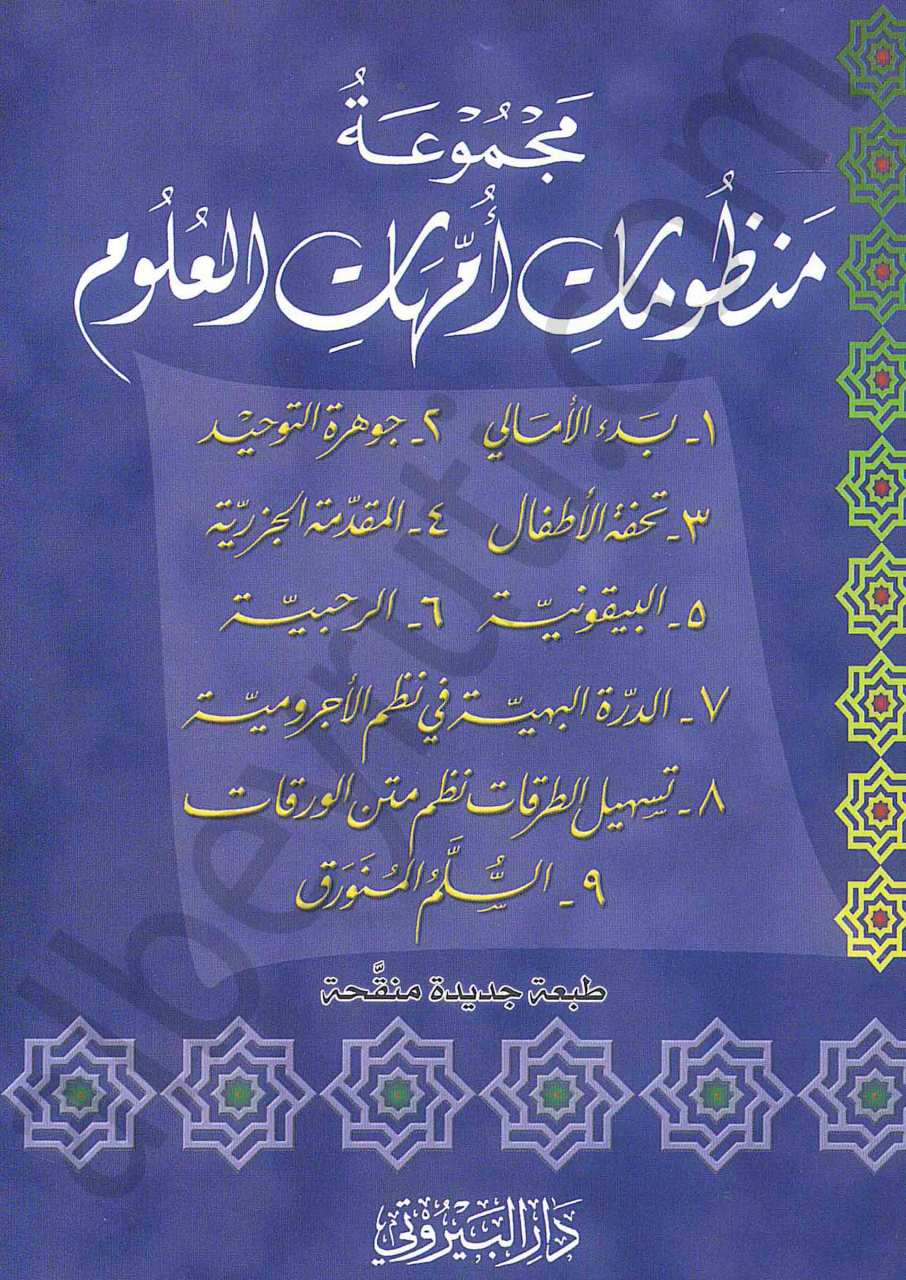 مَجْمُوْعَةُ
مَنظُومَاتِ أُمَّهَاتِ العُلُومِ
١ـ بَدء الأمَالي ٢ـ جوهرة التوحيْد
٣ـ تحفة الأطفال ٤ـ المقدّمة الجزريّة
٥ـ البيقونيّة ٦ـ الرحبيّة
٧ـ الدرّة البهيّة في نظم الأجروميّة
٨ـ تسهيل الطرقات نظم متن الورقات
٩ـ السُّلَّمُ المُنَورَق
طبعة جديدة منقَّحة
دَارُ البَيْرُوتي
albeyruti.com